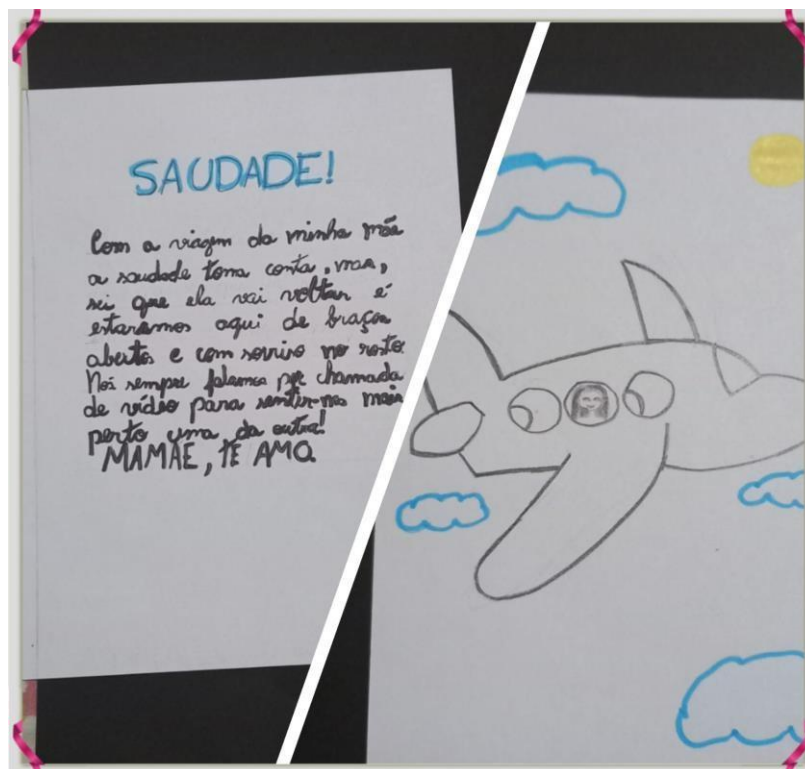 SAUDADE!
Com a viagem da minha mãe
a saudade toma conta, mas,
sei que ela vai voltar e
estaremos aqui de braços
abertos e com sorriso no rosto.
Nós sempre falamos por chamada
de vídeo para sentir-nos mais
perto uma da outra!
MAMÃE, TE AMO.